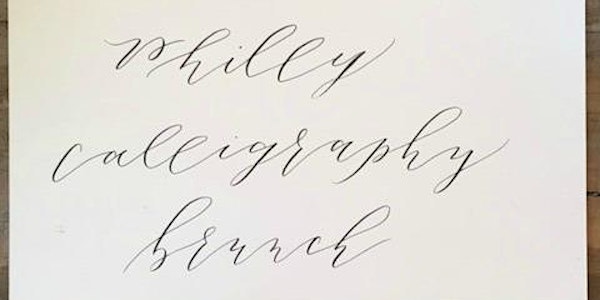 Philly
Calligraphy
brunch